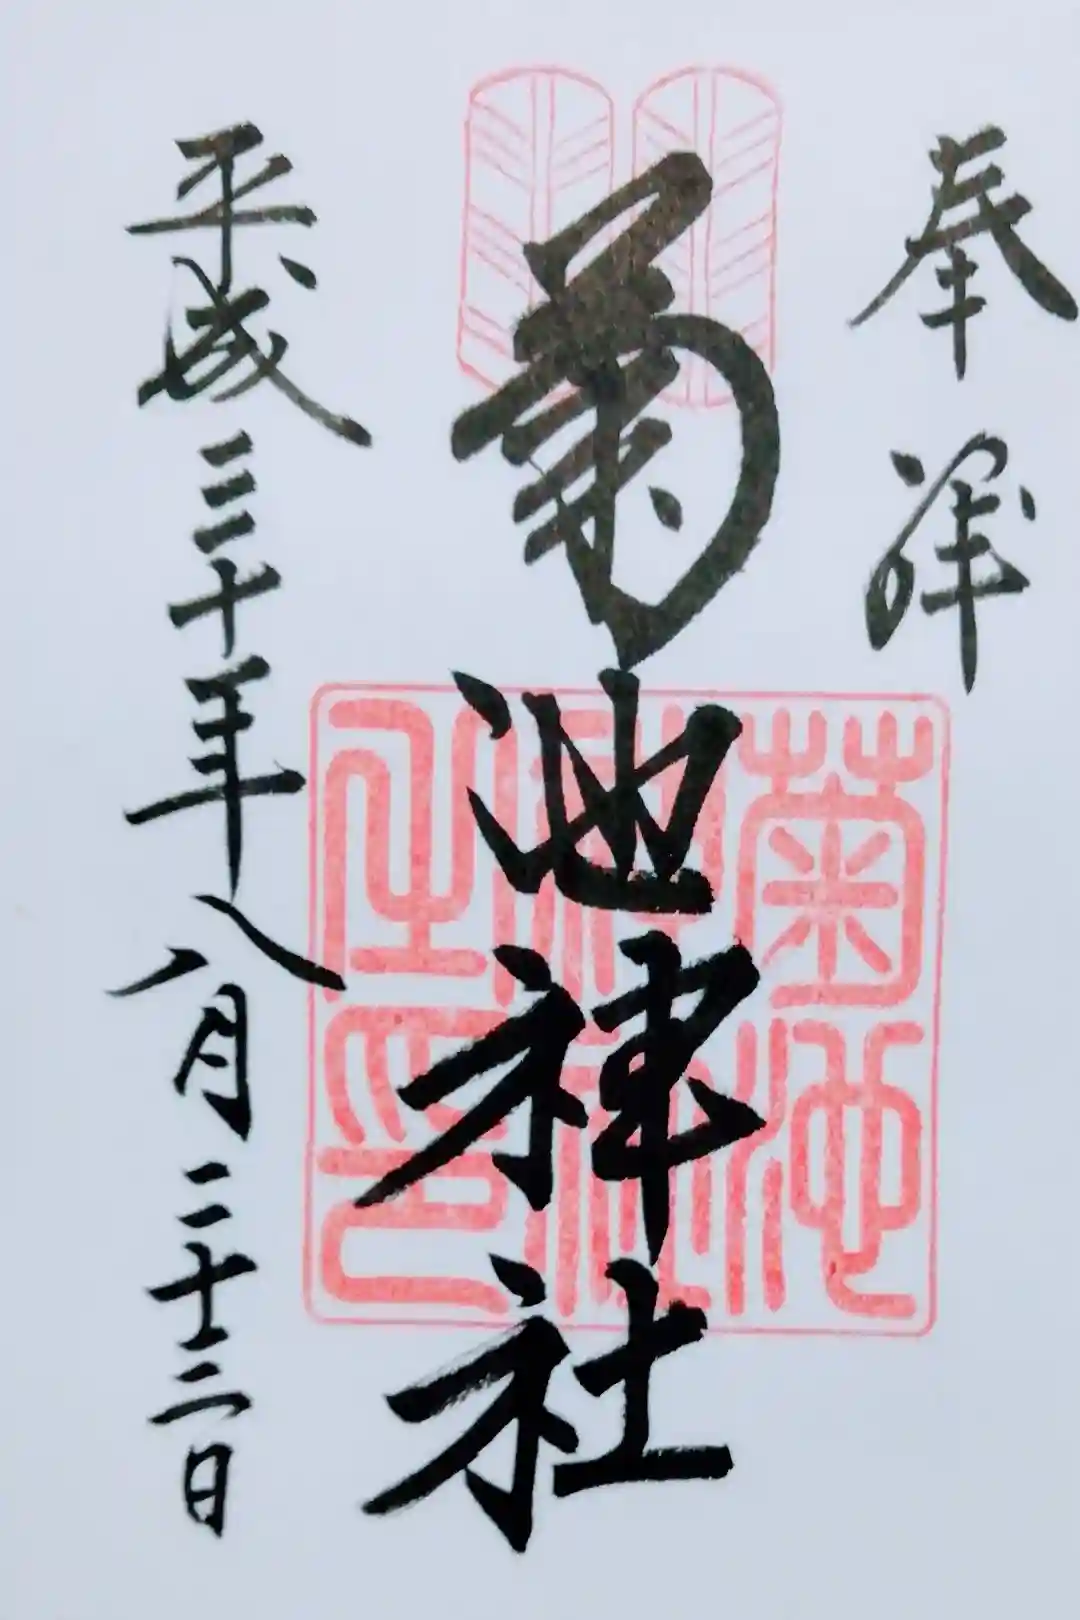 奉拝
菊池神社
菊池神社之印
平成三十年八月二十二日